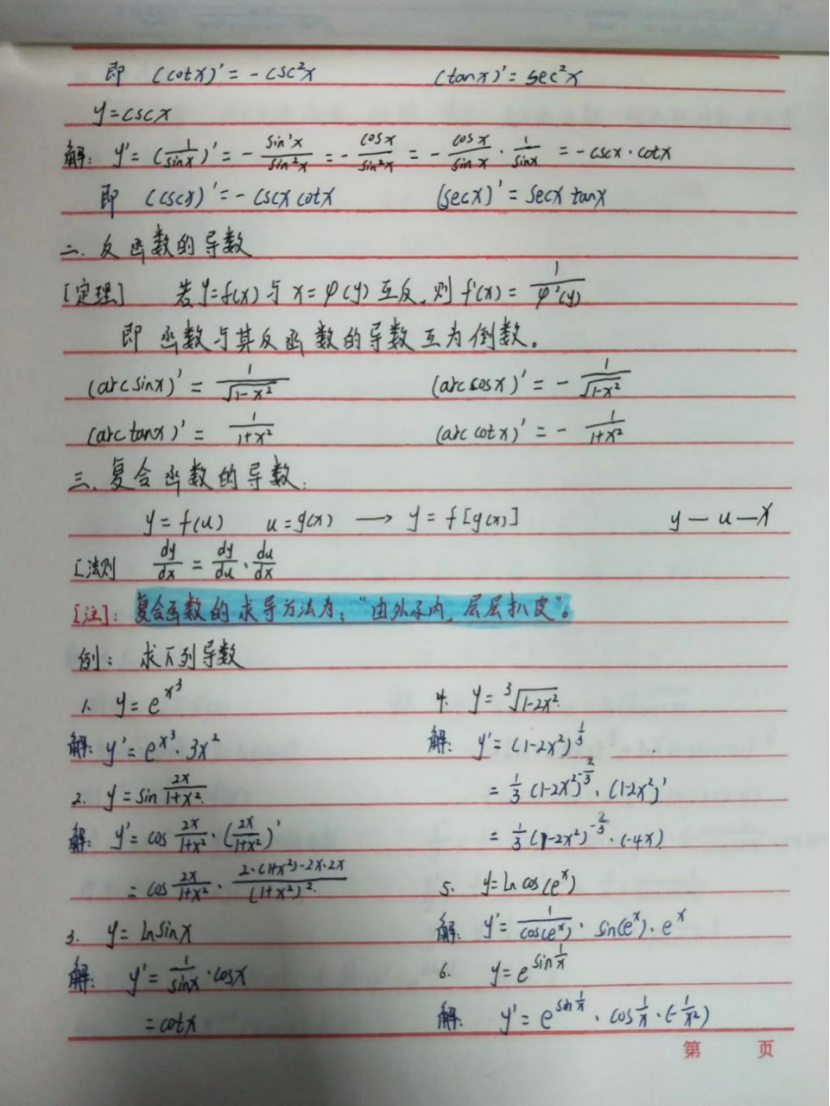 即 (cotx)' = -csc²x (tanx)' = sec²x
y=cscx
解: y' = (1/sinx)' = - sin'x/sin²x = - cosx/sin²x = - cosx/sinx · 1/sinx = -cscx·cotx
即 (cscx)' = -cscx cotx (secx)' = secx tanx
二. 反函数的导数
[定理] 若y=f(x)与 x=φ(y)互反, 则 f'(x) = 1/φ'(y)
即 函数与其反函数的导数互为倒数。
(arcsinx)' = 1/√(1-x²) (arccosx)' = - 1/√(1-x²)
(arctanx)' = 1/(1+x²) (arccotx)' = - 1/(1+x²)
三. 复合函数的导数:
y=f(u) u=g(x) → y=f[g(x)] y — u — x
[法则 dy/dx = dy/du · du/dx
[注]: 复合函数的求导方法为: "由外到内, 层层扒皮"。
例: 求下列导数
1. y=e^(x³)
解: y' = e^(x³)·3x²
2. y=sin 2x/(1+x²)
解: y' = cos 2x/(1+x²) · (2x/(1+x²))'
= cos 2x/(1+x²) · (2·(1+x²)-2x·2x)/(1+x²)²
3. y=lnsinx
解: y' = 1/sinx · cosx
=cotx
4. y=³√(1-2x²)
解: y' = (1-2x²)^(1/3)
= 1/3 (1-2x²)^(-2/3) · (1-2x²)'
= 1/3 (1-2x²)^(-2/3) · (-4x)
5. y=ln cos(e^x)
解: y' = 1/cos(e^x) · sin(e^x)·e^x
6. y=e^(sin 1/x)
解: y' = e^(sin 1/x) · cos 1/x · (-1/x²)
第 页